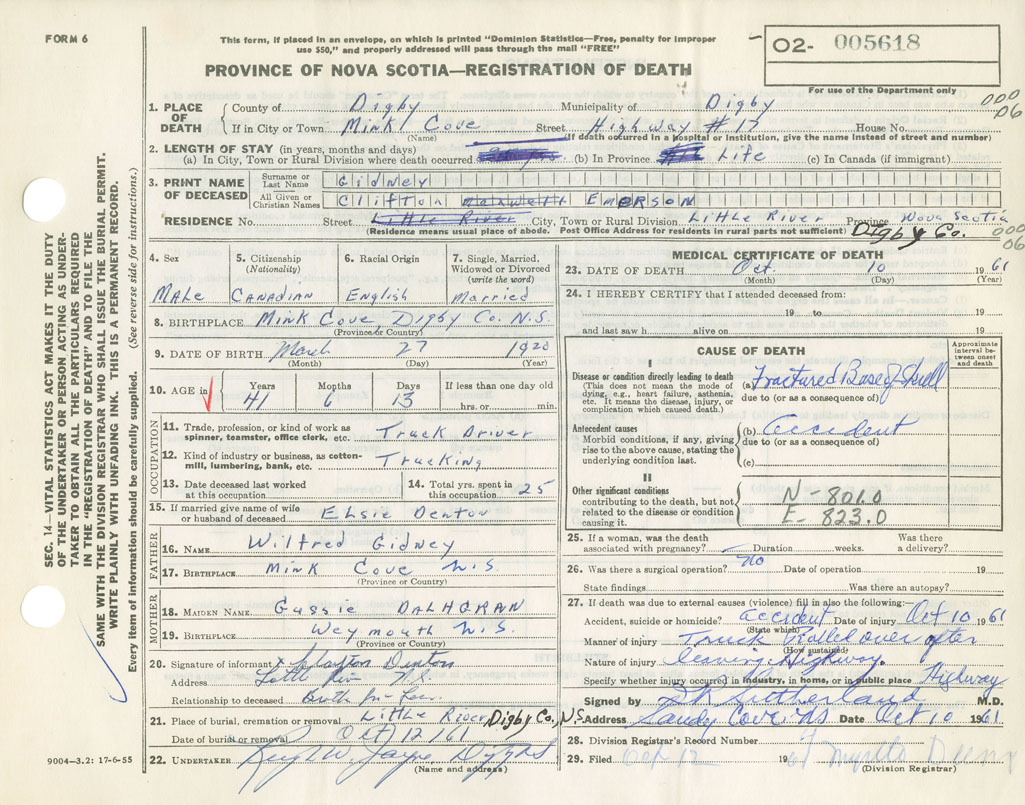 FORM 6
This form, if placed in an envelope, on which is printed "Dominion Statistics—Free, penalty for improper
use $50," and properly addressed will pass through the mail "FREE"
PROVINCE OF NOVA SCOTIA—REGISTRATION OF DEATH
02- 005618
For use of the Department only
000
06
SEC. 14—VITAL STATISTICS ACT MAKES IT THE DUTY
OF THE UNDERTAKER OR PERSON ACTING AS UNDER-
TAKER TO OBTAIN ALL THE PARTICULARS REQUIRED
IN THE "REGISTRATION OF DEATH" AND TO FILE THE
SAME WITH THE DIVISION REGISTRAR WHO SHALL ISSUE THE BURIAL PERMIT.
WRITE PLAINLY WITH UNFADING INK. THIS IS A PERMANENT RECORD.
Every item of Information should be carefully supplied. (See reverse side for instructions.)
1. PLACE OF DEATH
County of Digby Municipality of Digby
If in City or Town Mink Cove Street Highway # 17 House No.
(Name) (If death occurred in a hospital or institution, give the name instead of street and number)
2. LENGTH OF STAY (in years, months and days)
(a) In City, Town or Rural Division where death occurred (b) In Province Life (c) In Canada (if immigrant)
3. PRINT NAME OF DECEASED
Surname or Last Name Gidney
All Given or Christian Names Clifton Maxwell Emerson
RESIDENCE No. Street Little River City, Town or Rural Division Little River Province Nova Scotia
(Residence means usual place of abode. Post Office Address for residents in rural parts not sufficient) Digby Co.
000
06
4. Sex
Male
5. Citizenship
(Nationality)
Canadian
6. Racial Origin
English
7. Single, Married, Widowed or Divorced
(write the word)
Married
8. BIRTHPLACE Mink Cove, Digby Co. N.S.
(Province or Country)
9. DATE OF BIRTH March 27 1920
(Month) (Day) (Year)
10. AGE in Years Months Days If less than one day old
41 6 13 hrs. or min.
OCCUPATION
11. Trade, profession, or kind of work as
spinner, teamster, office clerk, etc. Truck Driver
12. Kind of industry or business, as cotton-
mill, lumbering, bank, etc. Trucking
13. Date deceased last worked
at this occupation
14. Total yrs. spent in
this occupation 25
15. If married give name of wife
or husband of deceased Elsie Denton
FATHER
16. NAME Wilfred Gidney
17. BIRTHPLACE Mink Cove N.S
(Province or Country)
MOTHER
18. MAIDEN NAME Gussie
19. BIRTHPLACE Weymouth N.S.
(Province or Country)
20. Signature of informant x Clayton Denton
Address Little River N.S.
Relationship to deceased Broth in Law
21. Place of burial, cremation or removal Little River Digby Co., N.S.
Date of burial or removal Oct 12/61
22. UNDERTAKER
(Name and address)
9004—3.2: 17-6-55
MEDICAL CERTIFICATE OF DEATH
23. DATE OF DEATH Oct. 10 1961
(Month) (Day) (Year)
24. I HEREBY CERTIFY that I attended deceased from:
19 to 19
and last saw h alive on 19
CAUSE OF DEATH
Approximate interval between onset and death
I
Disease or condition directly leading to death
(This does not mean the mode of
dying, e.g., heart failure, asthenia,
etc. It means the disease, injury, or
complication which caused death.)
(a) Fractured Base of Skull
due to (or as a consequence of)
Antecedent causes
Morbid conditions, if any, giving
rise to the above cause, stating the
underlying condition last.
(b) accident
due to (or as a consequence of)
(c)
II
Other significant conditions
contributing to the death, but not
related to the disease or condition
causing it.
N - 801.0
E - 823.0
25. If a woman, was the death
associated with pregnancy? Duration weeks. Was there
a delivery?
26. Was there a surgical operation? no Date of operation 19
State findings Was there an autopsy?
27. If death was due to external causes (violence) fill in also the following:
Accident, suicide or homicide? accident Date of injury Oct 10 1961
(State which)
Manner of injury Truck Rolled over after
(How sustained)
Nature of injury leaving Highway.
Specify whether injury occurred in industry, in home, or in public place Highway
Signed by Sutherland M.D.
Address Sandy Cove NS Date Oct 10 1961
28. Division Registrar's Record Number
29. Filed Oct 12 1961
(Division Registrar)